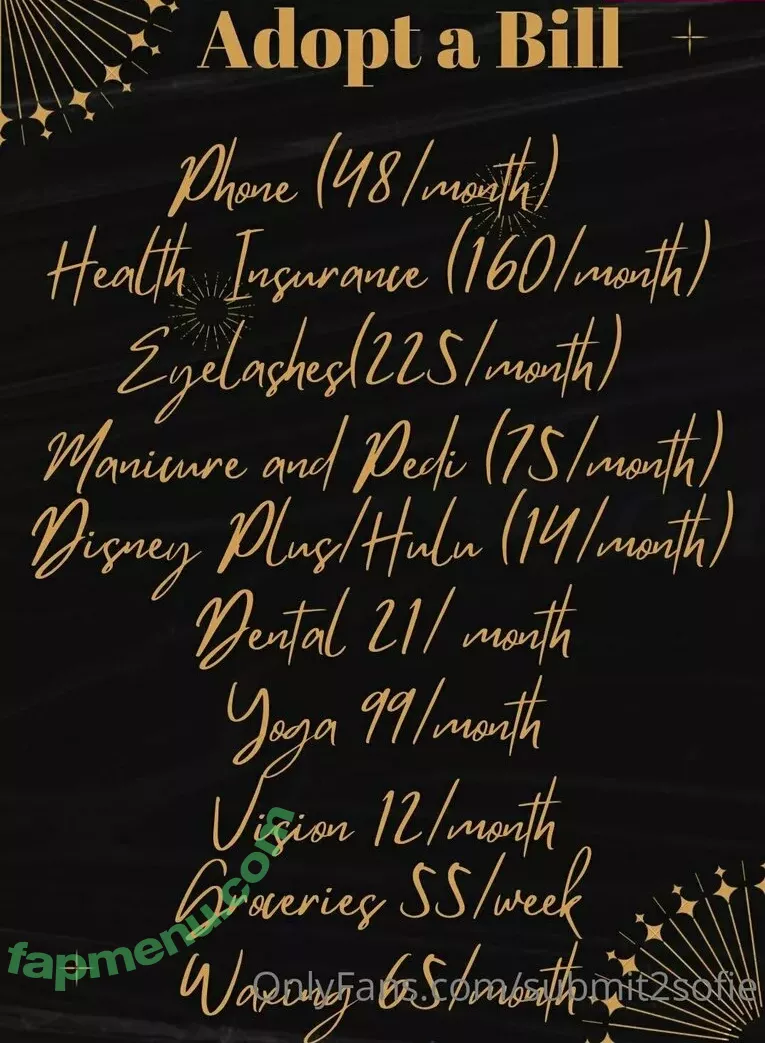 Adopt a Bill
Phone (48/month)
Health Insurance (160/month)
Eyelashes(225/month)
Manicure and Pedi (75/month)
Disney Plus/Hulu (14/month)
Dental 21/ month
Yoga 99/month
Vision 12/month
Groceries 55/week
Waxing 65/month
fapmenu.com
OnlyFans.com/submit2sofie